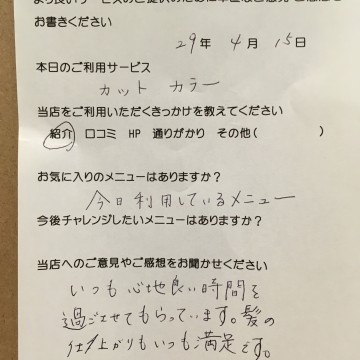 お書きください
29年 4月 15日
本日のご利用サービス
カット カラー
当店をご利用いただくきっかけを教えてください
紹介 口コミ HP 通りがかり その他( )
お気に入りのメニューはありますか?
今日利用しているメニュー
今後チャレンジしたいメニューはありますか?
当店へのご意見やご感想をお聞かせください
いつも心地良い時間を
過ごさせてもらっています。髪の
仕上がりもいつも満足です。